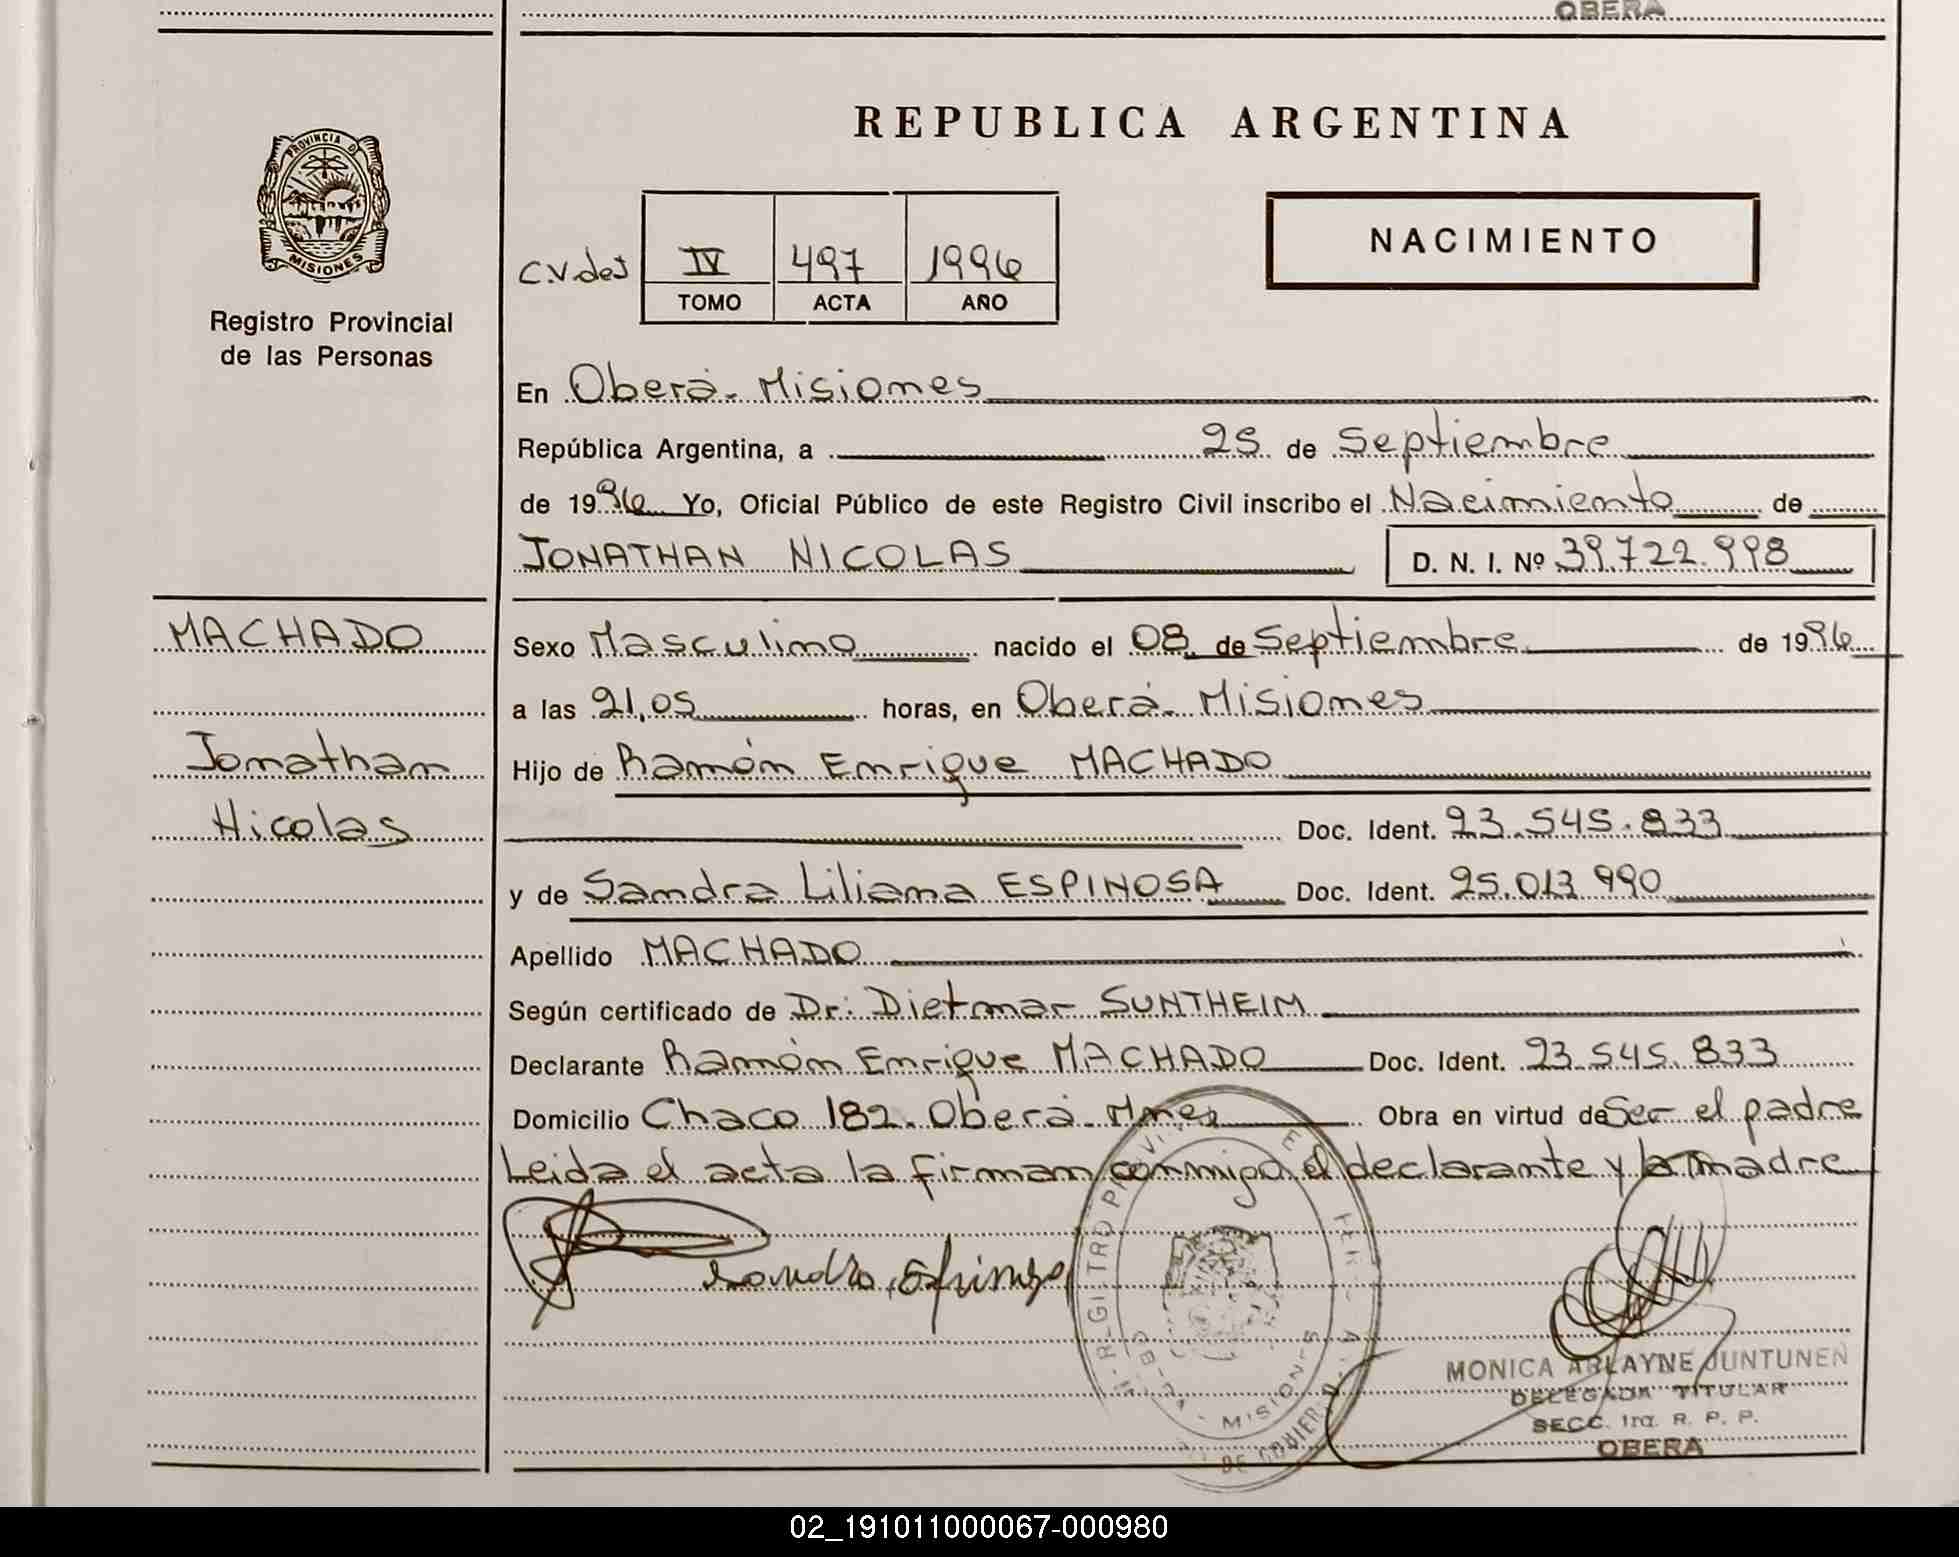 OBERA
REPUBLICA ARGENTINA
PROVINCIA D
MISIONES
Registro Provincial
de las Personas
NACIMIENTO
IV 497 1996
TOMO ACTA AÑO
En Oberá - Misiones
República Argentina, a 25 de Septiembre
de 1996 Yo, Oficial Público de este Registro Civil inscribo el Nacimiento de
JONATHAN NICOLAS D. N. I. Nº 39.722.998
MACHADO
Jonathan
Nicolas
Sexo Masculino nacido el 08 de Septiembre de 1996
a las 21,05 horas, en Oberá - Misiones
Hijo de Ramón Enrique MACHADO
Doc. Ident. 23.545.833
y de Sandra Liliana ESPINOSA Doc. Ident. 25.013.990
Apellido MACHADO
Según certificado de Dr: Dietmar SUNTHEIM
Declarante Ramón Enrique MACHADO Doc. Ident. 23.545.833
Domicilio Chaco 182. Oberá - Mnes Obra en virtud de Ser el padre
Leida el acta la firman conmigo el declarante y la madre
Sandra Espinosa
MISIONES
MONICA ARLAYNE JUNTUNEN
DELEGADA TITULAR
SECC. 1ra. R. P. P.
OBERA
02_191011000067-000980